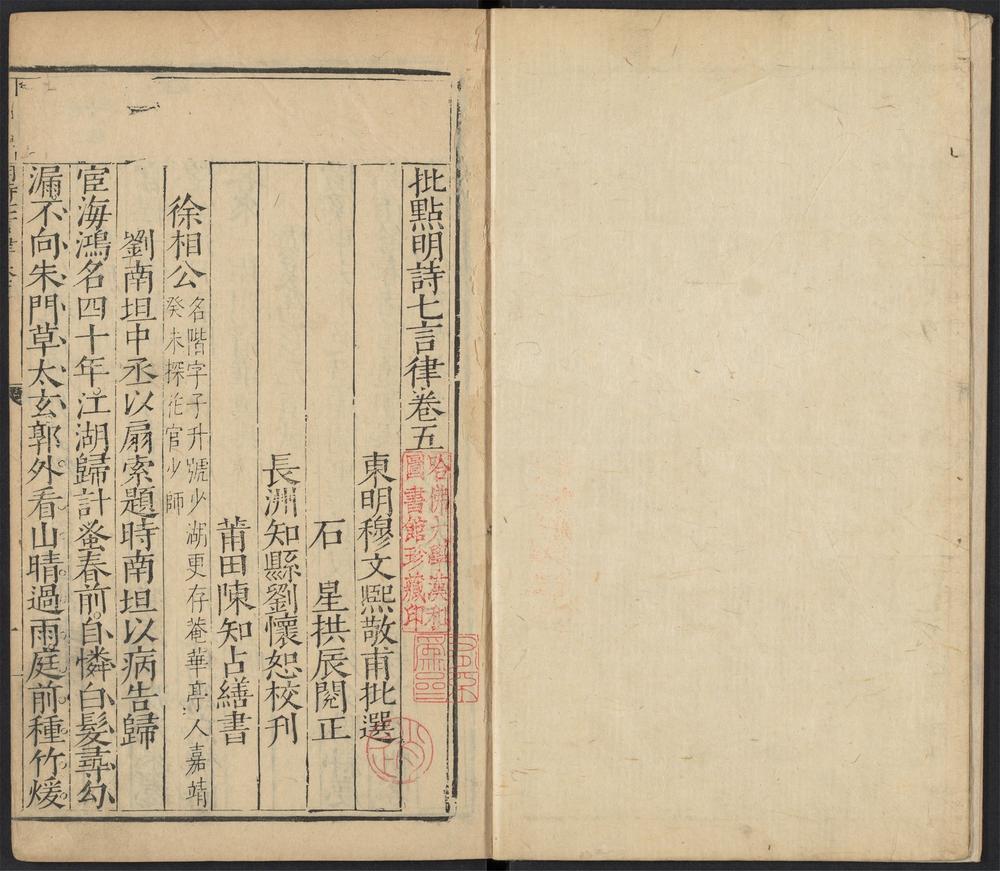 批點明詩七言律卷五
東明穆文熙敬甫批選
石星拱辰閱正
長洲知縣劉懷恕校刊
莆田陳知占繕書
徐相公
名階字子升號少湖更存菴華亭人嘉靖
癸未探花官少師
劉南坦中丞以扇索題時南坦以病告歸
宦海鴻名四十年江湖歸計蚤春前自憐白髮尋勾
漏不向朱門草太玄郭外看山晴過雨庭前種竹煖
哈佛大學漢和
圖書館珍藏印